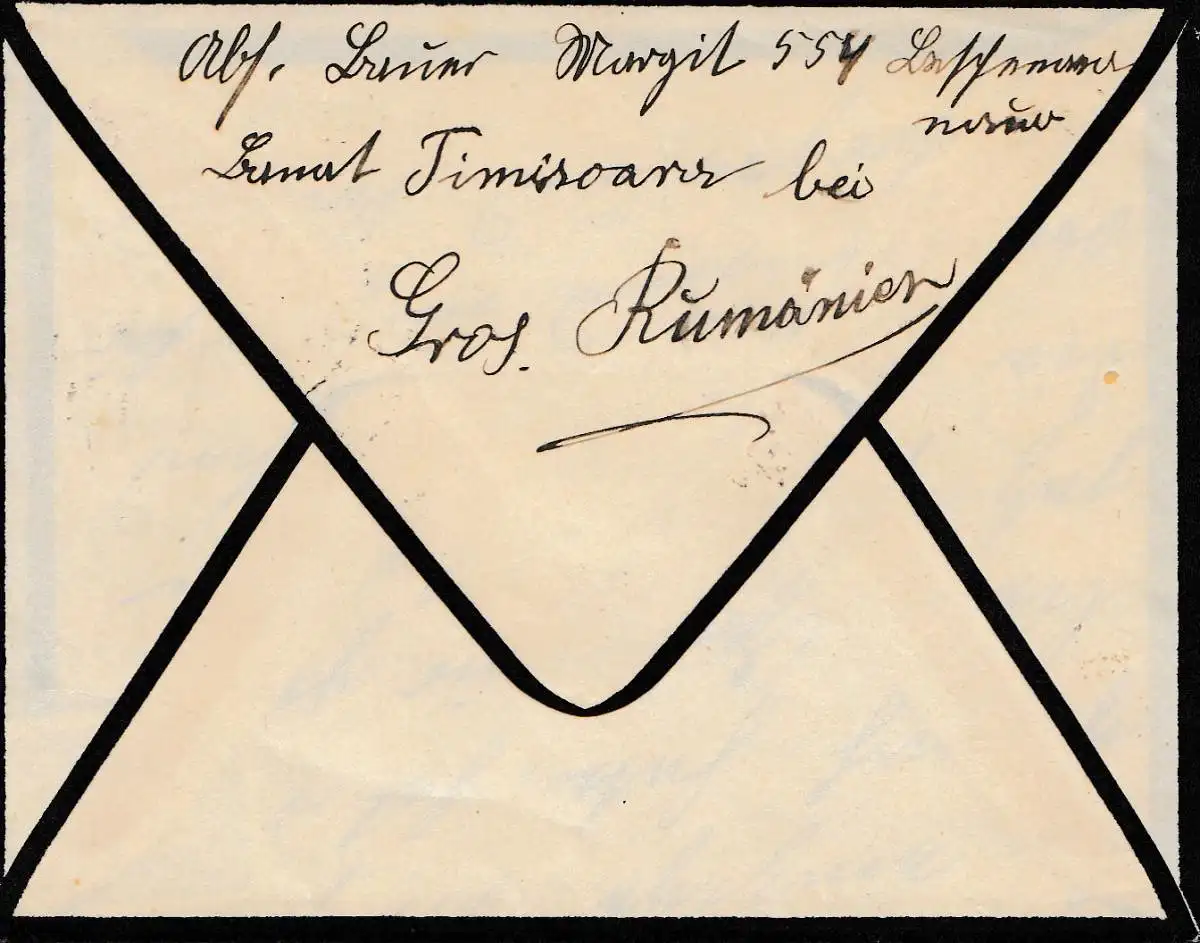 Abs. Bauer Margit 554 Beschenova
noua
Banat Timisoara bei
Gros. Rumänien